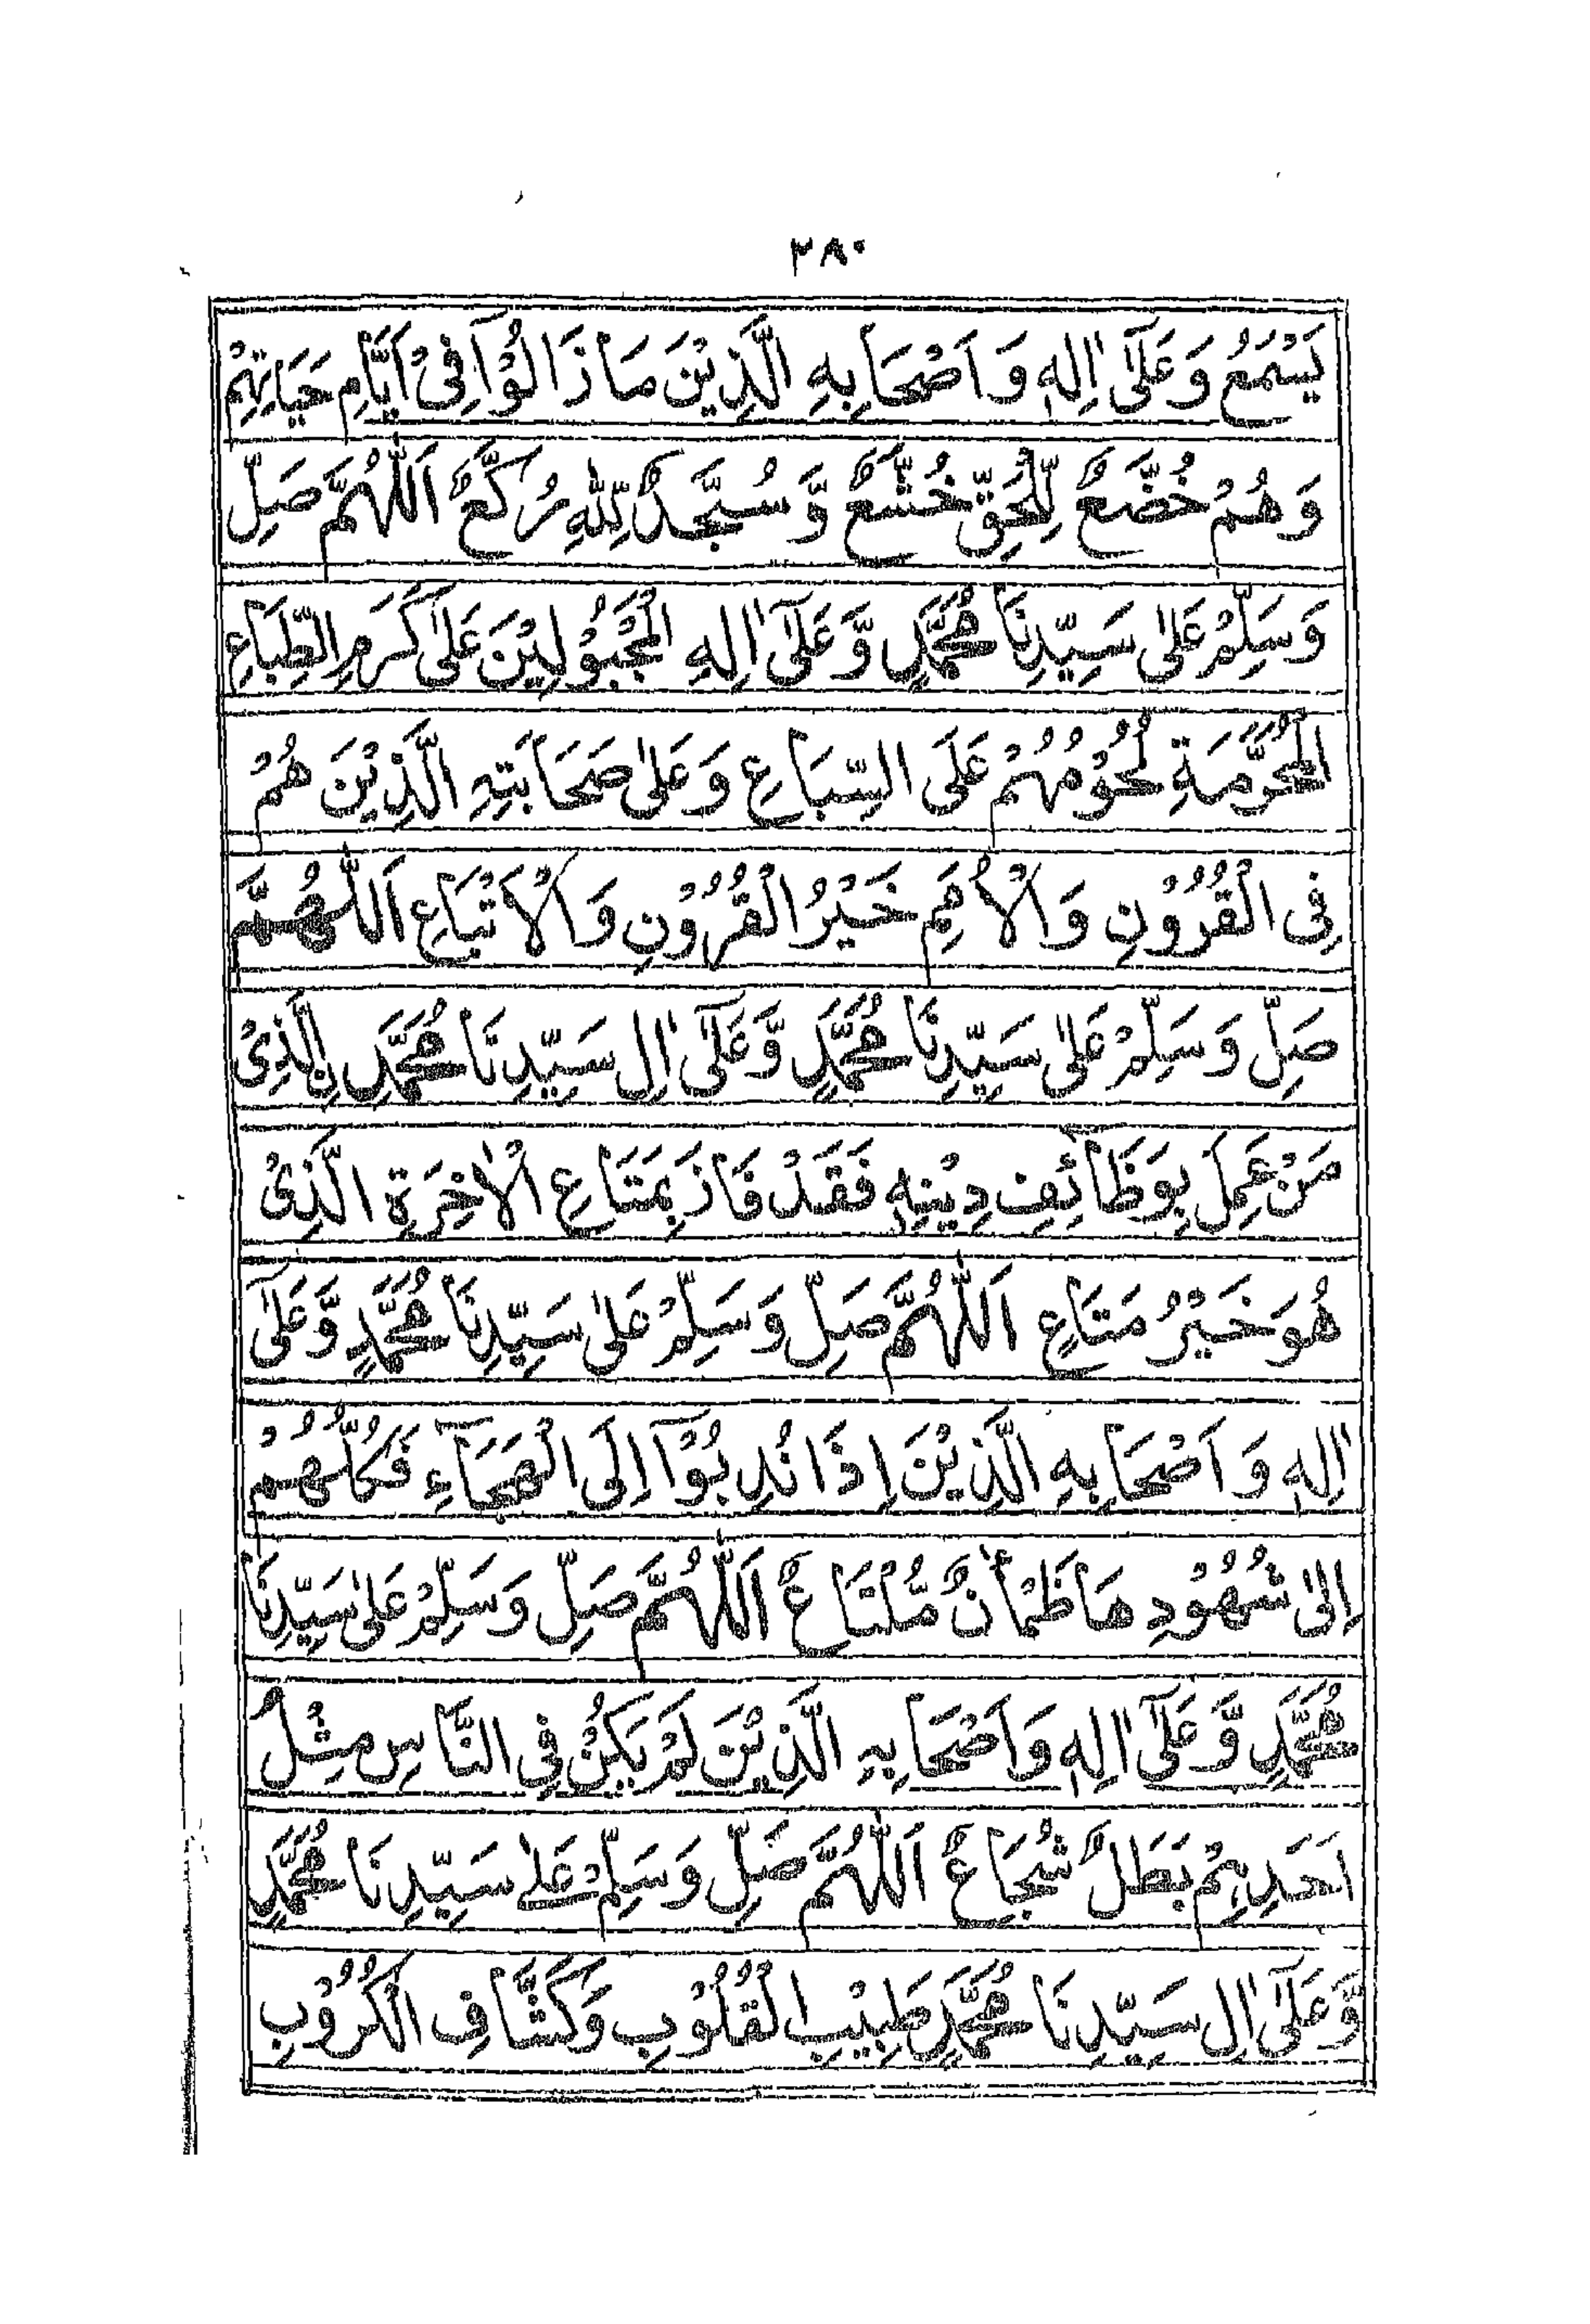 ٢٨٠
يَسْمَعُ وَعَلٰٓى اٰلِهٖ وَ اَصْحَابِهِ الَّذِيْنَ مَا زَالُوْا فِىْٓ اَيَّامِ حَيَاتِهِمْ
وَهُمْ خُضَّعٌ لِلْحَقِّ خُشَّعٌ وَّ سُجَّدٌ لِلّٰهِ رُكَّعٌ اَللّٰهُمَّ صَلِّ
وَسَلِّمْ عَلٰى سَيِّدِنَا مُحَمَّدٍ وَّعَلٰٓى اٰلِهِ الْمَجْبُوْلِيْنَ عَلٰى كَرَمِ الطِّبَاعِ
الْمُحَرَّمَةِ لُحُوْمُهُمْ عَلَى السِّبَاعِ وَعَلٰى صَحَابَتِهِ الَّذِيْنَ هُمْ
فِى الْقُرُوْنِ وَالْاُمَمِ خَيْرُ الْقُرُوْنِ وَالْاَتْبَاعِ اَللّٰهُمَّ
صَلِّ وَسَلِّمْ عَلٰى سَيِّدِنَا مُحَمَّدٍ وَّعَلٰٓى اٰلِ سَيِّدِنَا مُحَمَّدِ ࣙالَّذِىْ
مَنْ عَمِلَ بِوَظَائِفِ دِيْنِهٖ فَقَدْ فَازَ بِمَتَاعِ الْاٰخِرَةِ الَّذِىْ
هُوَ خَيْرُ مَتَاعٍ اَللّٰهُمَّ صَلِّ وَسَلِّمْ عَلٰى سَيِّدِنَا مُحَمَّدٍ وَّعَلٰٓى
اٰلِهٖ وَ اَصْحَابِهِ الَّذِيْنَ اِذَا نُدِبُوْٓا اِلَى الْهَيْجَآءِ فَكُلُّهُمْ
اِلٰى شُهُوْدِهَا ظَمْاٰنٌ مُّلْتَاعٌ اَللّٰهُمَّ صَلِّ وَسَلِّمْ عَلٰى سَيِّدِنَا
مُحَمَّدٍ وَّعَلٰٓى اٰلِهٖ وَاَصْحَابِهِ الَّذِيْنَ لَمْ يَكُنْ فِى النَّاسِ مِثْلُ
اَحَدِهِمْ بَطَلٌ شُجَاعٌ اَللّٰهُمَّ صَلِّ وَسَلِّمْ عَلٰے سَيِّدِنَا مُحَمَّدٍ
وَّعَلٰٓى اٰلِ سَيِّدِنَا مُحَمَّدٍ طَبِيْبِ الْقُلُوْبِ وَكَشَّافِ الْكُرُوْبِ